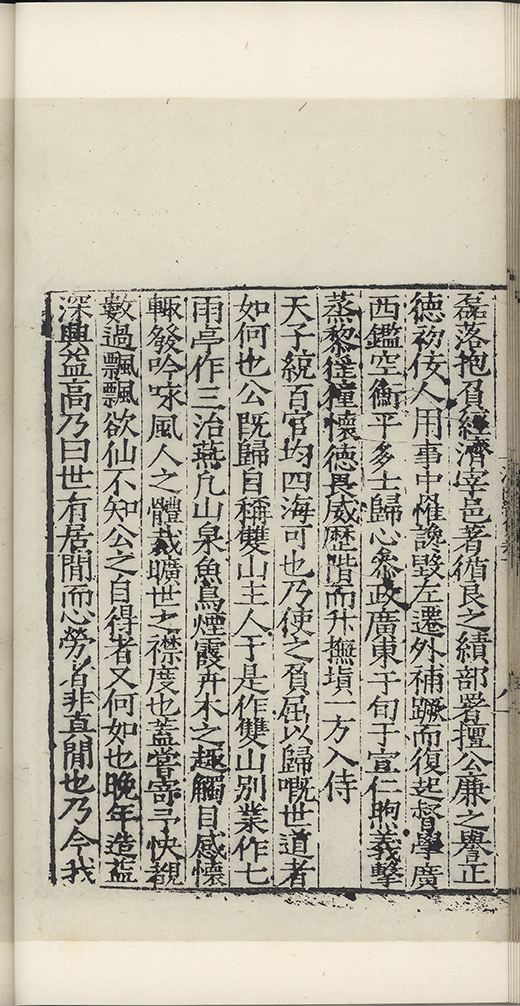 磊落抱負經濟宰邑著循良之績部署擅公廉之譽正
德初佞人用事中惟讒毀左遷外補蹶而復起督學廣
西鑑空衡平多士歸心叅政廣東于旬于宣仁煦義擊
蒸黎徒僮懷德畏威歷階而升撫塡一方入侍
天子統百官均四海可也乃使之負屈以歸嘅世道者
如何也公既歸自稱雙山主人于是作雙山別業作七
雨亭作三治燕凢山泉魚鳥煙霞卉木之趣觸目感懷
輙發吟咏風人之體裁曠世之襟度也蓋嘗寄予快覩
數過飄飄欲仙不知公之自得者又何如也晚年造益
深興益高乃曰世有居閒而心勞者非真閒也乃今我